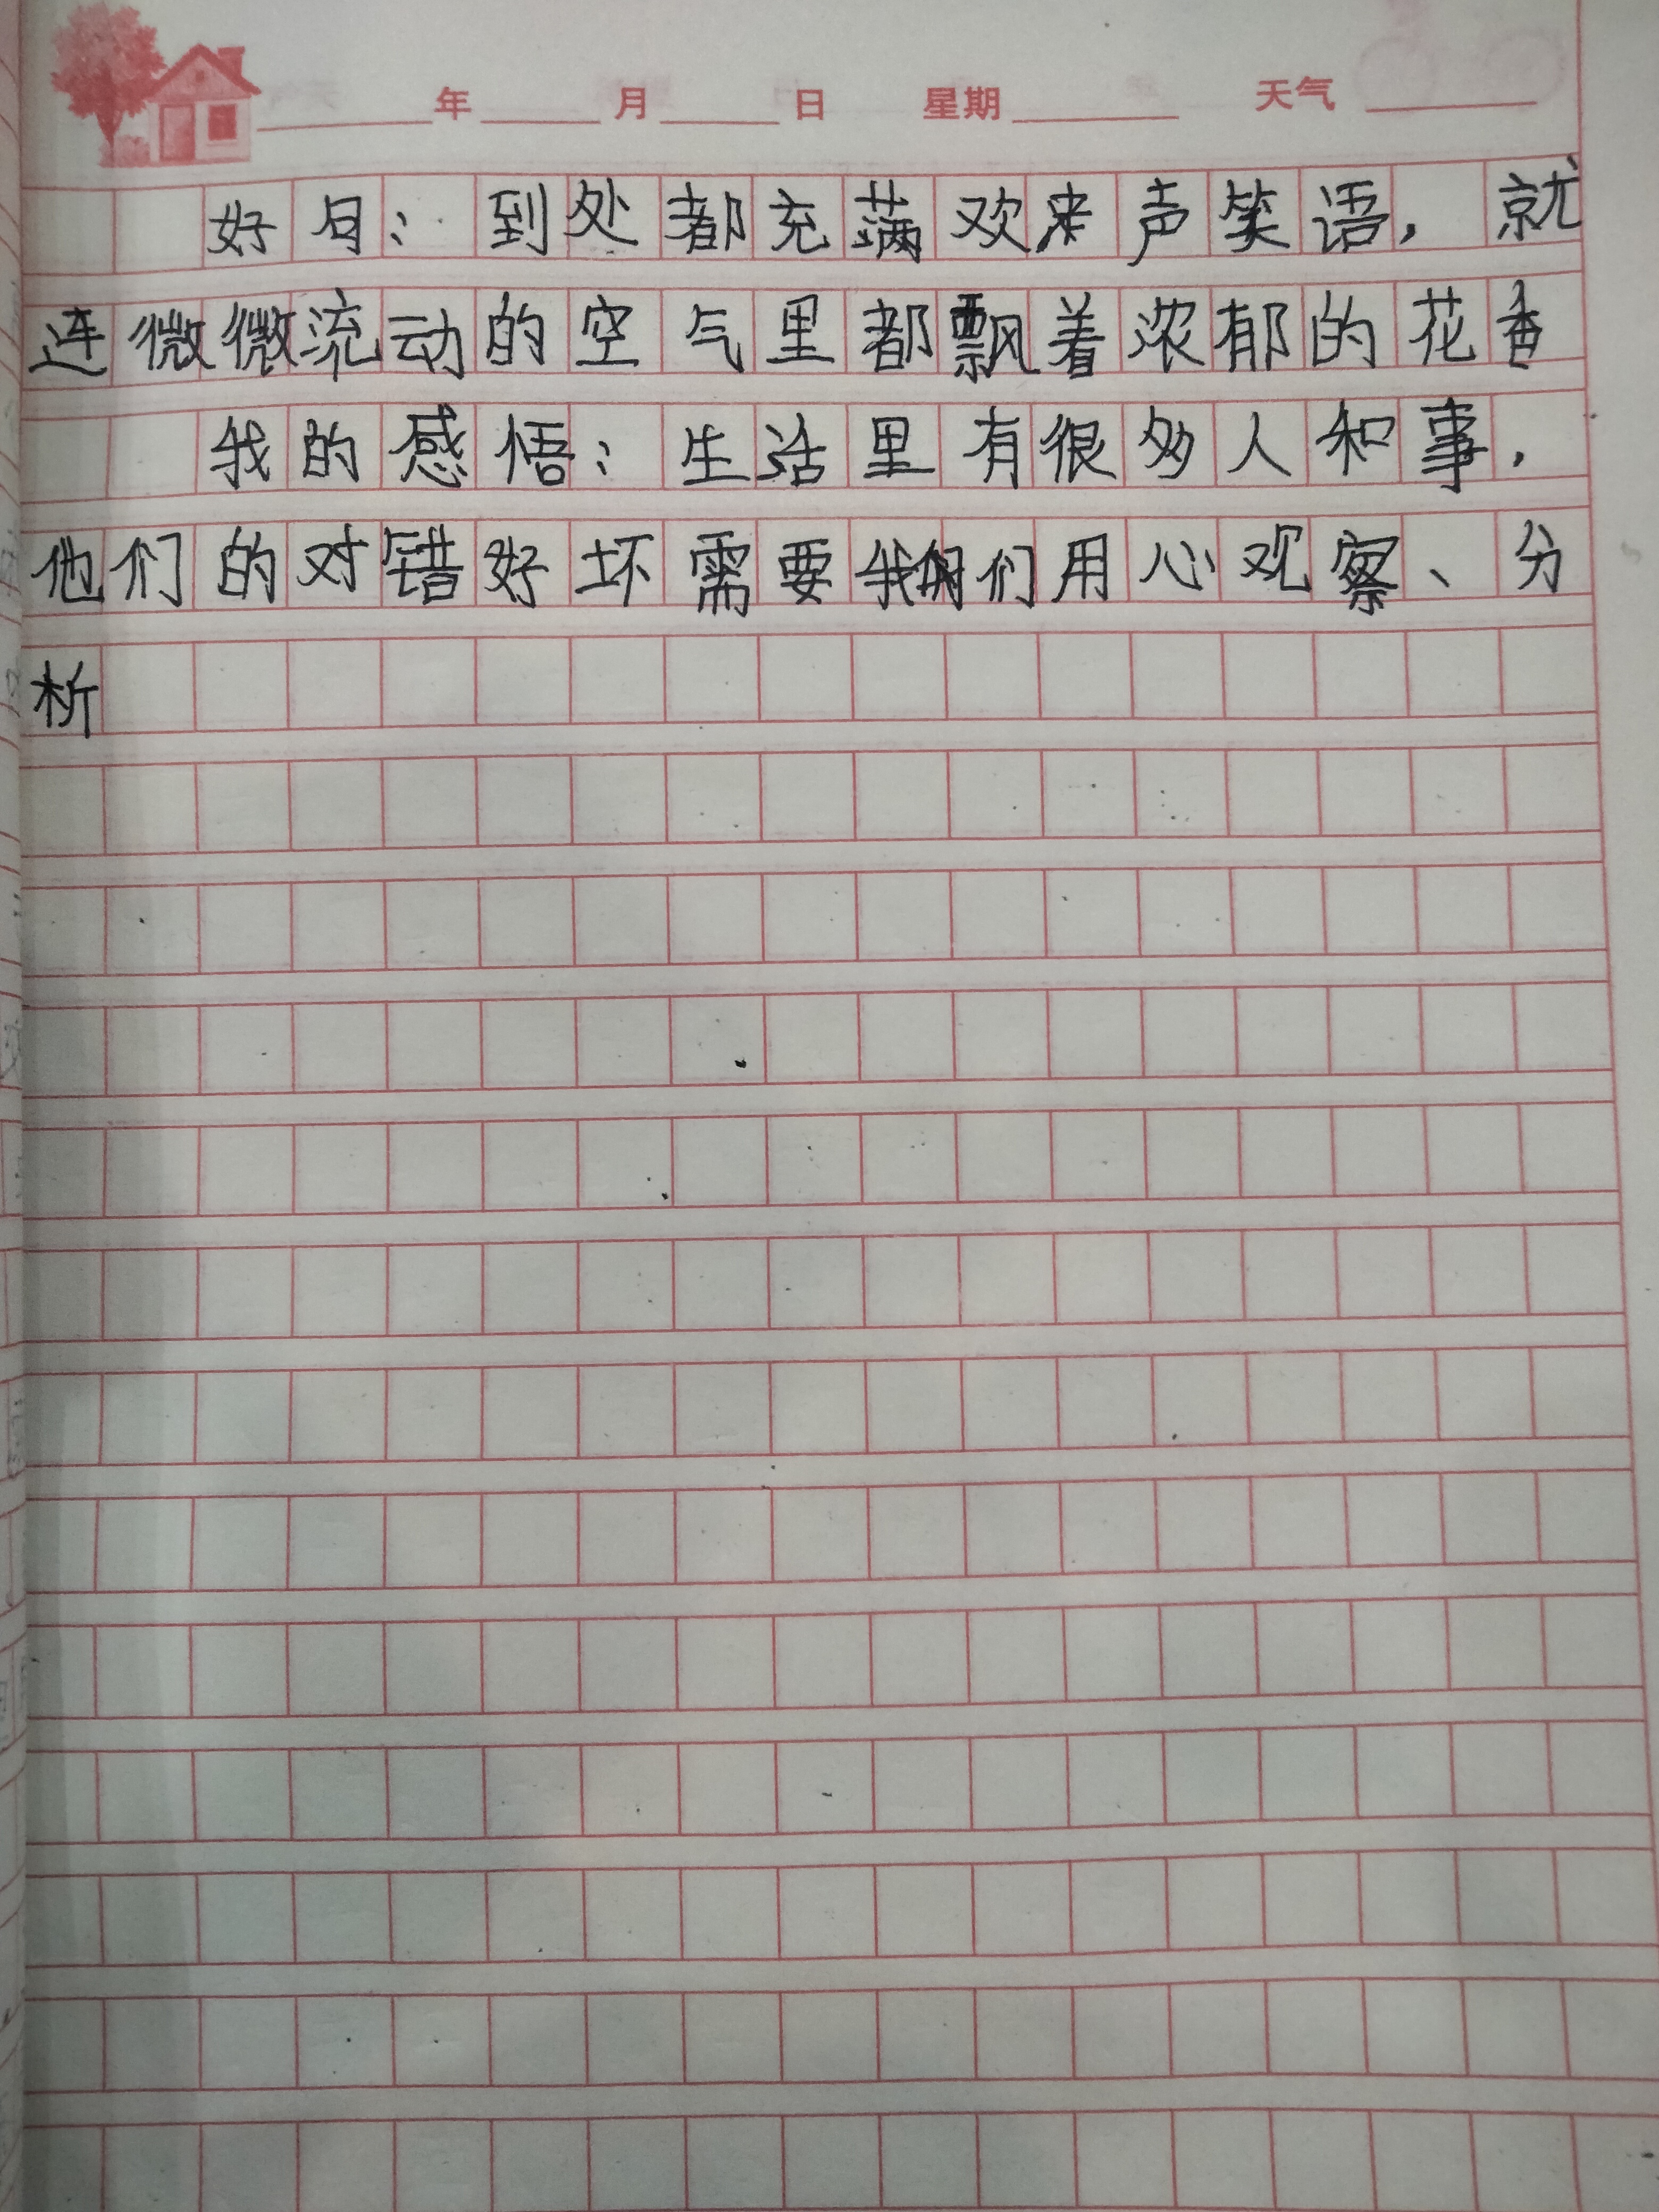 年 月 日 星期 天气
好句：到处都充满欢来声笑语，就
连微微流动的空气里都飘着浓郁的花香
我的感悟：生活里有很多人和事，
他们的对错好坏需要我们用心观察、分
析